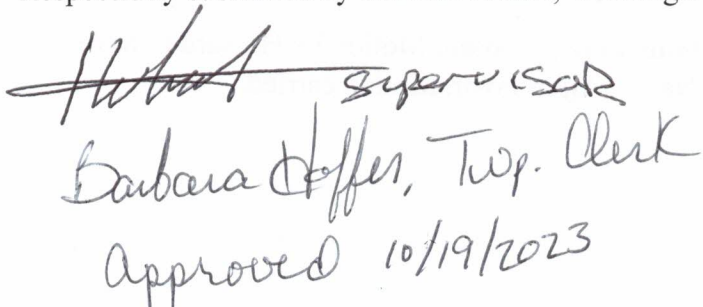 supervisor
Barbara Hoffer, Twp. Clerk
Approved 10/19/2023